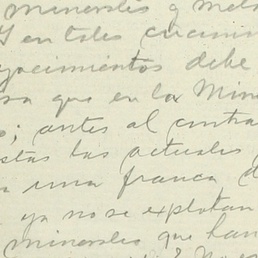 minerales y meta
Y en tales circuns
yacimientos debe
ra que en las Mine
o; antes al contra
estas las actuales
a una franca d
ya no se explotan
minerales que han